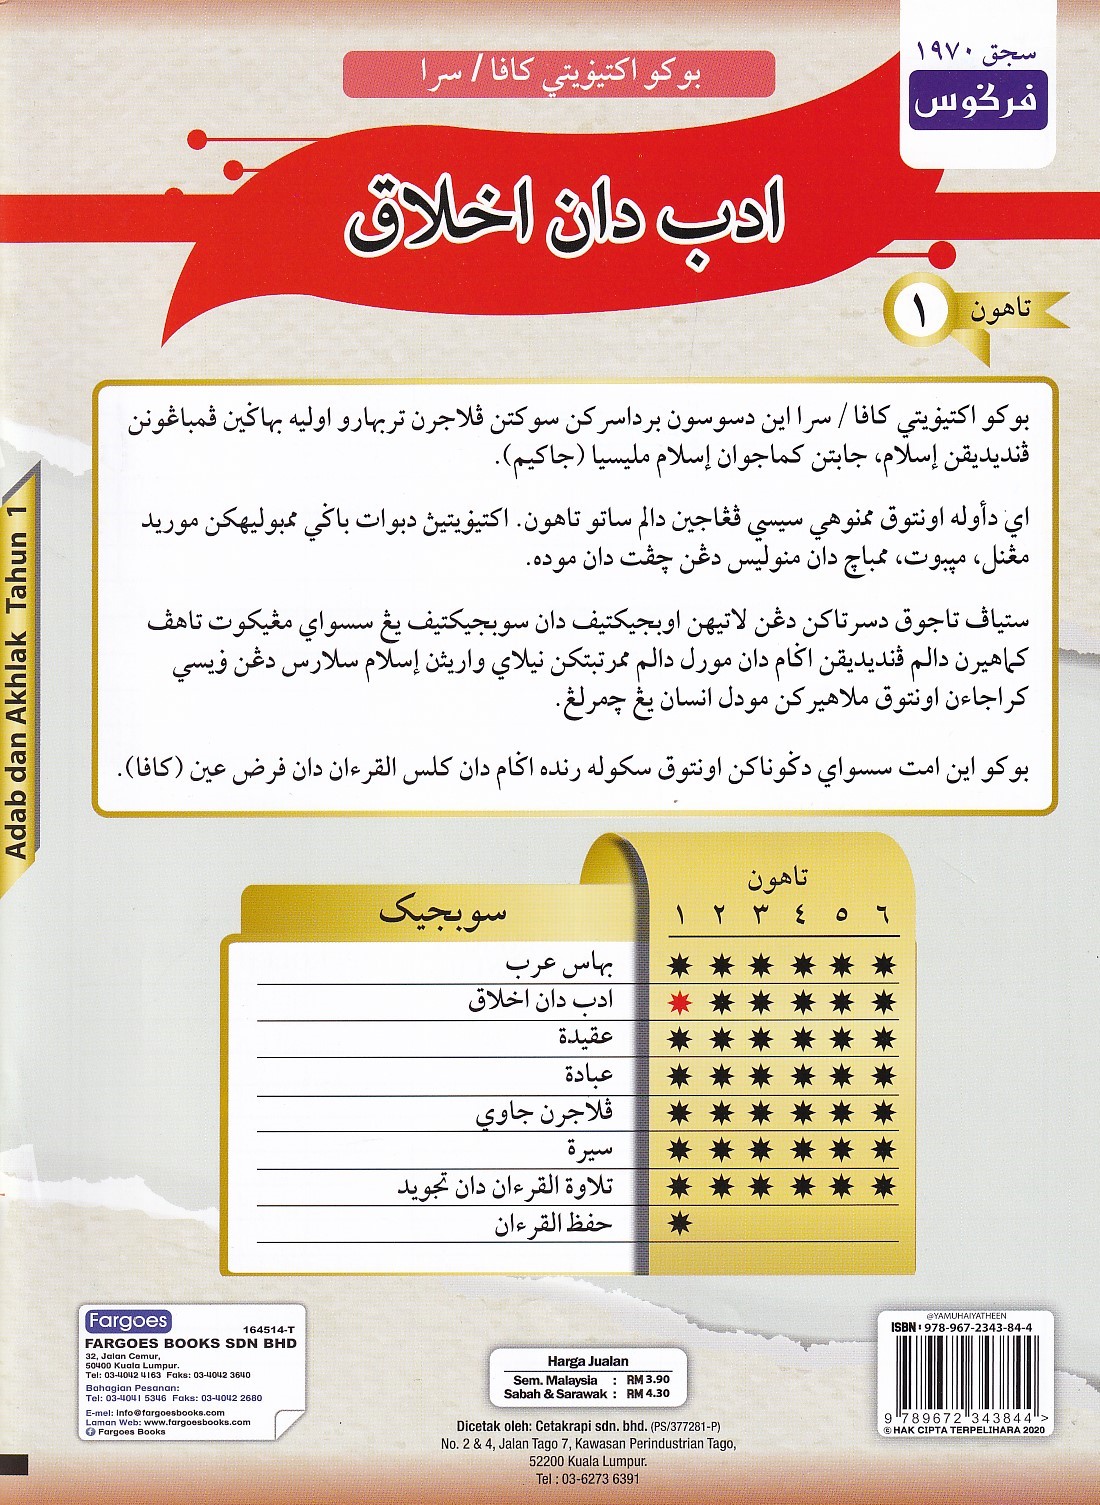 سجق ١٩٧٠
فرݢوس
بوكو اكتيۏيتي كافا / سرا
ادب دان اخلاق
تاهون ١
بوكو اكتيۏيتي كافا / سرا اين دسوسون برداسركن سوكتن ڤلاجرن تربهارو اوليه بهاݢين ڤمباڠونن
ڤنديديقن إسلام، جابتن كماجوان إسلام مليسيا (جاكيم).
اي دأوله اونتوق ممنوهي سيسي ڤڠاجين دالم ساتو تاهون. اكتيۏيتيڽ دبوات باݢي ممبوليهكن موريد
مڠنل، مڽبوت، ممباچ دان منوليس دڠن چڤت دان موده.
ستياڤ تاجوق دسرتاكن دڠن لاتيهن اوبجيكتيف دان سوبجيكتيف يڠ سسواي مڠيكوت تاهڤ
كماهيرن دالم ڤنديديقن اݢام دان مورل دالم ممرتبتكن نيلاي واريثن إسلام سلارس دڠن ۏيسي
كراجاءن اونتوق ملاهيركن مودل انسان يڠ چمرلڠ.
بوكو اين امت سسواي دݢوناكن اونتوق سكوله رنده اݢام دان كلس القرءان دان فرض عين (كافا).
Adab dan Akhlak Tahun 1
تاهون
١ ٢ ٣ ٤ ٥ ٦
سوبجيک
بهاس عرب
ادب دان اخلاق
عقيدة
عبادة
ڤلاجرن جاوي
سيرة
تلاوة القرءان دان تجويد
حفظ القرءان
Fargoes
164514-T
FARGOES BOOKS SDN BHD
32, Jalan Cemur,
50400 Kuala Lumpur.
Tel: 03-4042 4163 Faks: 03-4042 3640
Bahagian Pesanan:
Tel: 03-4041 5346 Faks: 03-4042 2680
E-mel: info@fargoesbooks.com
Laman Web: www.fargoesbooks.com
Fargoes Books
Harga Jualan
Sem. Malaysia : RM 3.90
Sabah & Sarawak : RM 4.30
Dicetak oleh: Cetakrapi sdn. bhd. (PS/377281-P)
No. 2 & 4, Jalan Tago 7, Kawasan Perindustrian Tago,
52200 Kuala Lumpur.
Tel : 03-6273 6391
@YAMUHAIYATHEEN
ISBN : 978-967-2343-84-4
9 789672 343844 >
© HAK CIPTA TERPELIHARA 2020